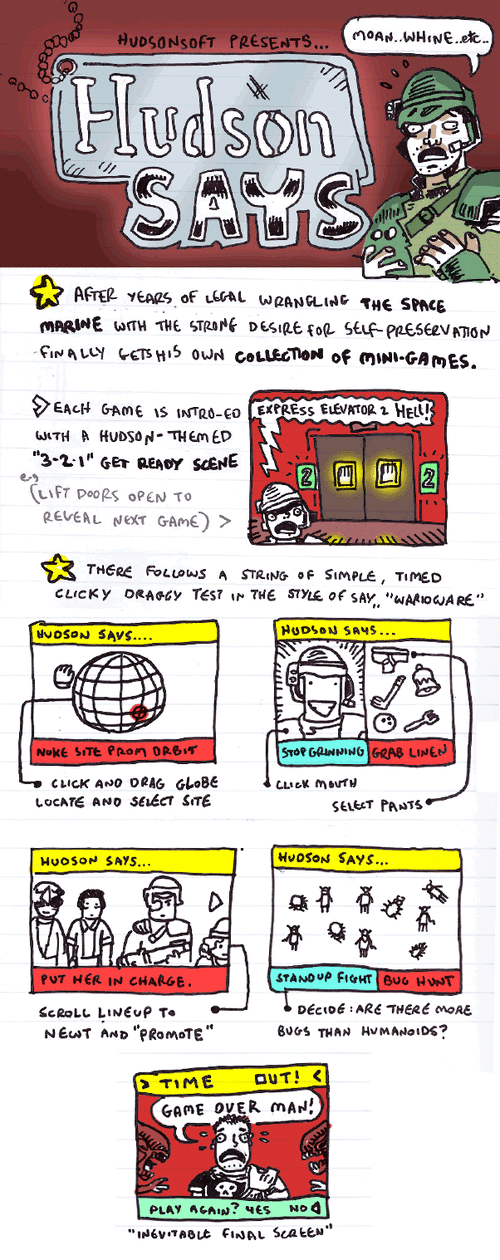 HUDSONSOFT PRESENTS...
MOAN..WHINE..etc..
Hudson
SAYS
AFTER YEARS OF LEGAL WRANGLING THE SPACE
MARINE WITH THE STRONG DESIRE FOR SELF-PRESERVATION
FINALLY GETS HIS OWN COLLECTION OF MINI-GAMES.
EACH GAME IS INTRO-ED
WITH A HUDSON-THEMED
"3-2-1" GET READY SCENE
e.g
(LIFT DOORS OPEN TO
REVEAL NEXT GAME) >
EXPRESS ELEVATOR 2 HELL!
2
2
THERE FOLLOWS A STRING OF SIMPLE, TIMED
CLICKY DRAGGY TEST IN THE STYLE OF SAY,, "WARIOWARE"
HUDSON SAYS....
NUKE SITE FROM ORBIT
CLICK AND DRAG GLOBE
LOCATE AND SELECT SITE
HUDSON SAYS...
STOP GRINNING
GRAB LINEN
CLICK MOUTH
SELECT PANTS
HUDSON SAYS...
PUT HER IN CHARGE.
SCROLL LINEUP TO
NEWT AND "PROMOTE"
HUDSON SAYS...
STANDUP FIGHT
BUG HUNT
DECIDE: ARE THERE MORE
BUGS THAN HUMANOIDS?
> TIME OUT! <
GAME OVER MAN!
PLAY AGAIN? YES NO
"INEVITABLE FINAL SCREEN"